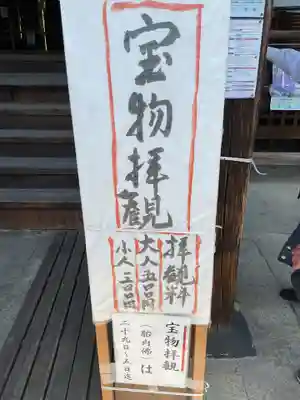 宝物拝観
拝観料
大人五百円
小人三百円
宝物拝観
(胎内佛)は
二十九日〜五日迄